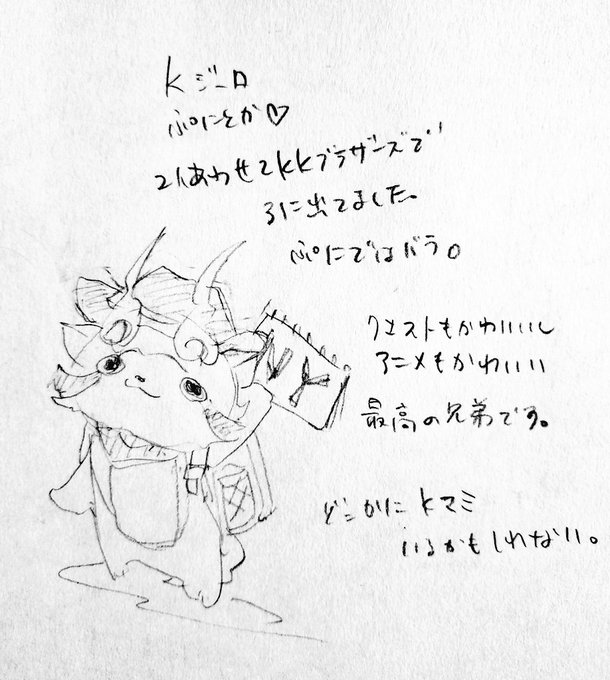 Kジロ
ぷにとか♡
2人あわせてKKブラザーズで
3に出てました。
ぷにではバラ。
クエストもかわいいし
アニメもかわいい
最高の兄弟です。
どこかにKマミ
いるかもしれない。
NY